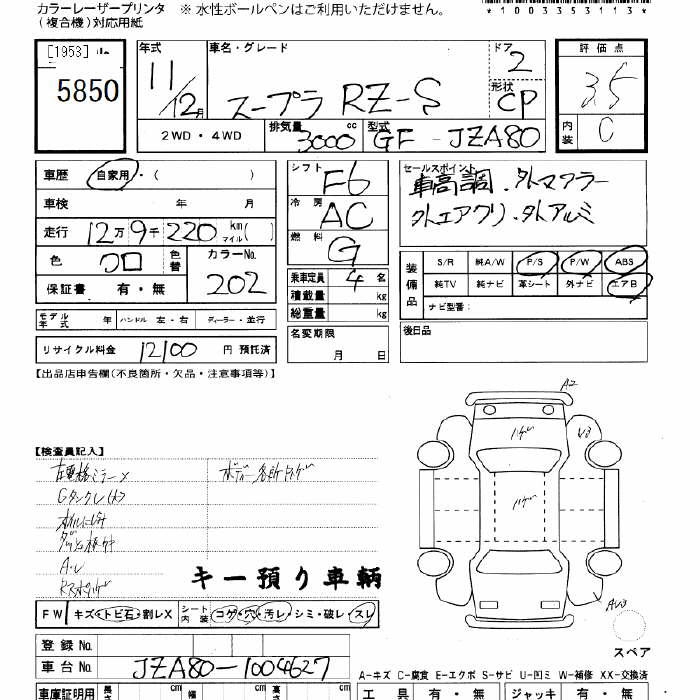 カラーレーザープリンタ ※ 水性ボールペンはご利用いただけません。
(複合機)対応用紙
*1003353113*
[1953]
5850
年式 11/12月
車名・グレード スープラ RZ-S
ドア 2
形状 CP
2WD ・ 4WD
排気量 3000 cc
型式 GF - JZA80
評価点 3.5
内装 C
車歴 自家用・( )
車検 年 月
走行 12万9千220 km マイル( )
色 クロ 色替 カラーNo. 202
保証書 有・無
モデル年式 年 ハンドル 左・右 ディーラー・並行
リサイクル料金 12100 円 預託済
シフト F6
冷房 AC
燃料 G
乗車定員 4 名
積載量 kg
総重量 kg
名変期限 月 日
セールスポイント
車高調．外マフラー
外エアクリ．外アルミ
装備品
S/R 純A/W P/S P/W ABS
純TV 純ナビ 革シート 外ナビ エアB
ナビ型番:
後日品
【出品店申告欄(不良箇所・欠品・注意事項等)】
【検査員記入】
A2
キー預り車輌
FW キズ・トビ石・割レX シート内装 コゲ・穴・汚レ・シミ・破レ・スレ
登録No.
車台No. JZA80-1004627
スペア
A-キズ C-腐食 E-エクボ S-サビ U-凹ミ W-補修 XX-交換済
車庫証明用 長さ cm 幅 cm 高さ cm
工具 有・無 ジャッキ 有・無